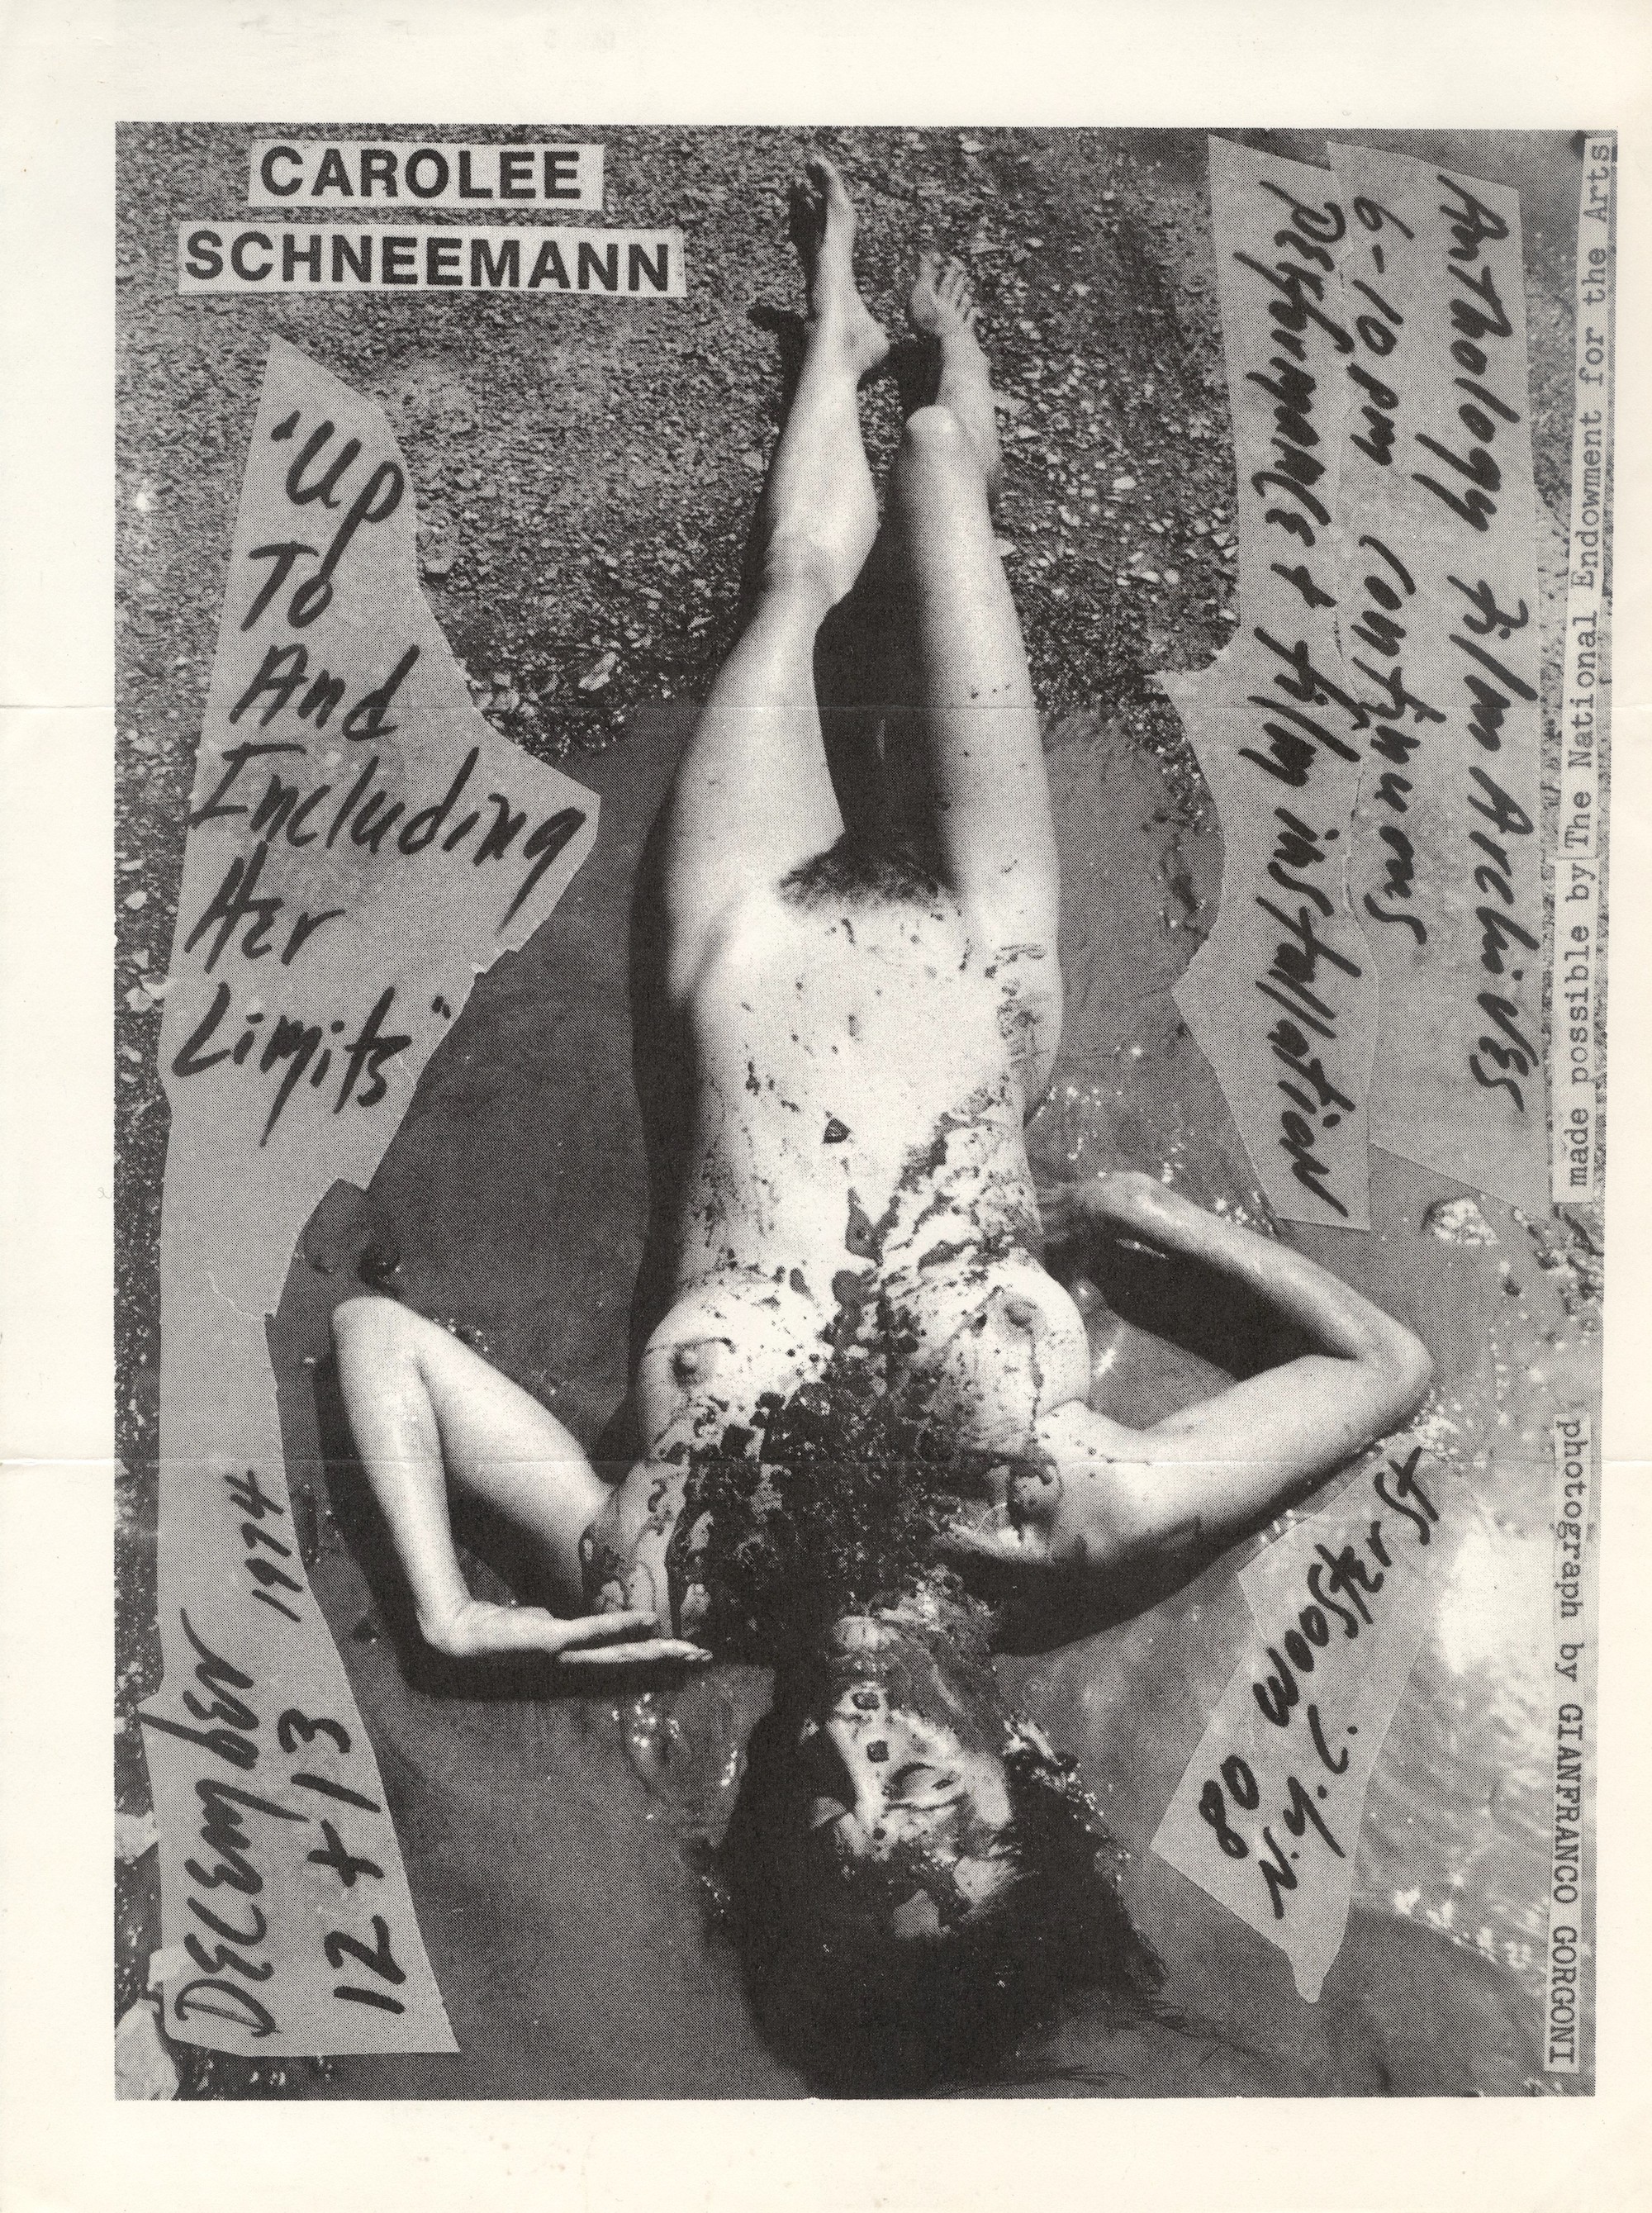 CAROLEE
SCHNEEMANN
"Up
To
And
Including
Her
Limits"
DECEMBER 1974
12 + 13
Anthology Film Archives
6-10 pm continuous
performance + film installation
80
WOOSTER ST
N.Y.C.
made possible by The National Endowment for the Arts
photograph by GIANFRANCO GORGONI